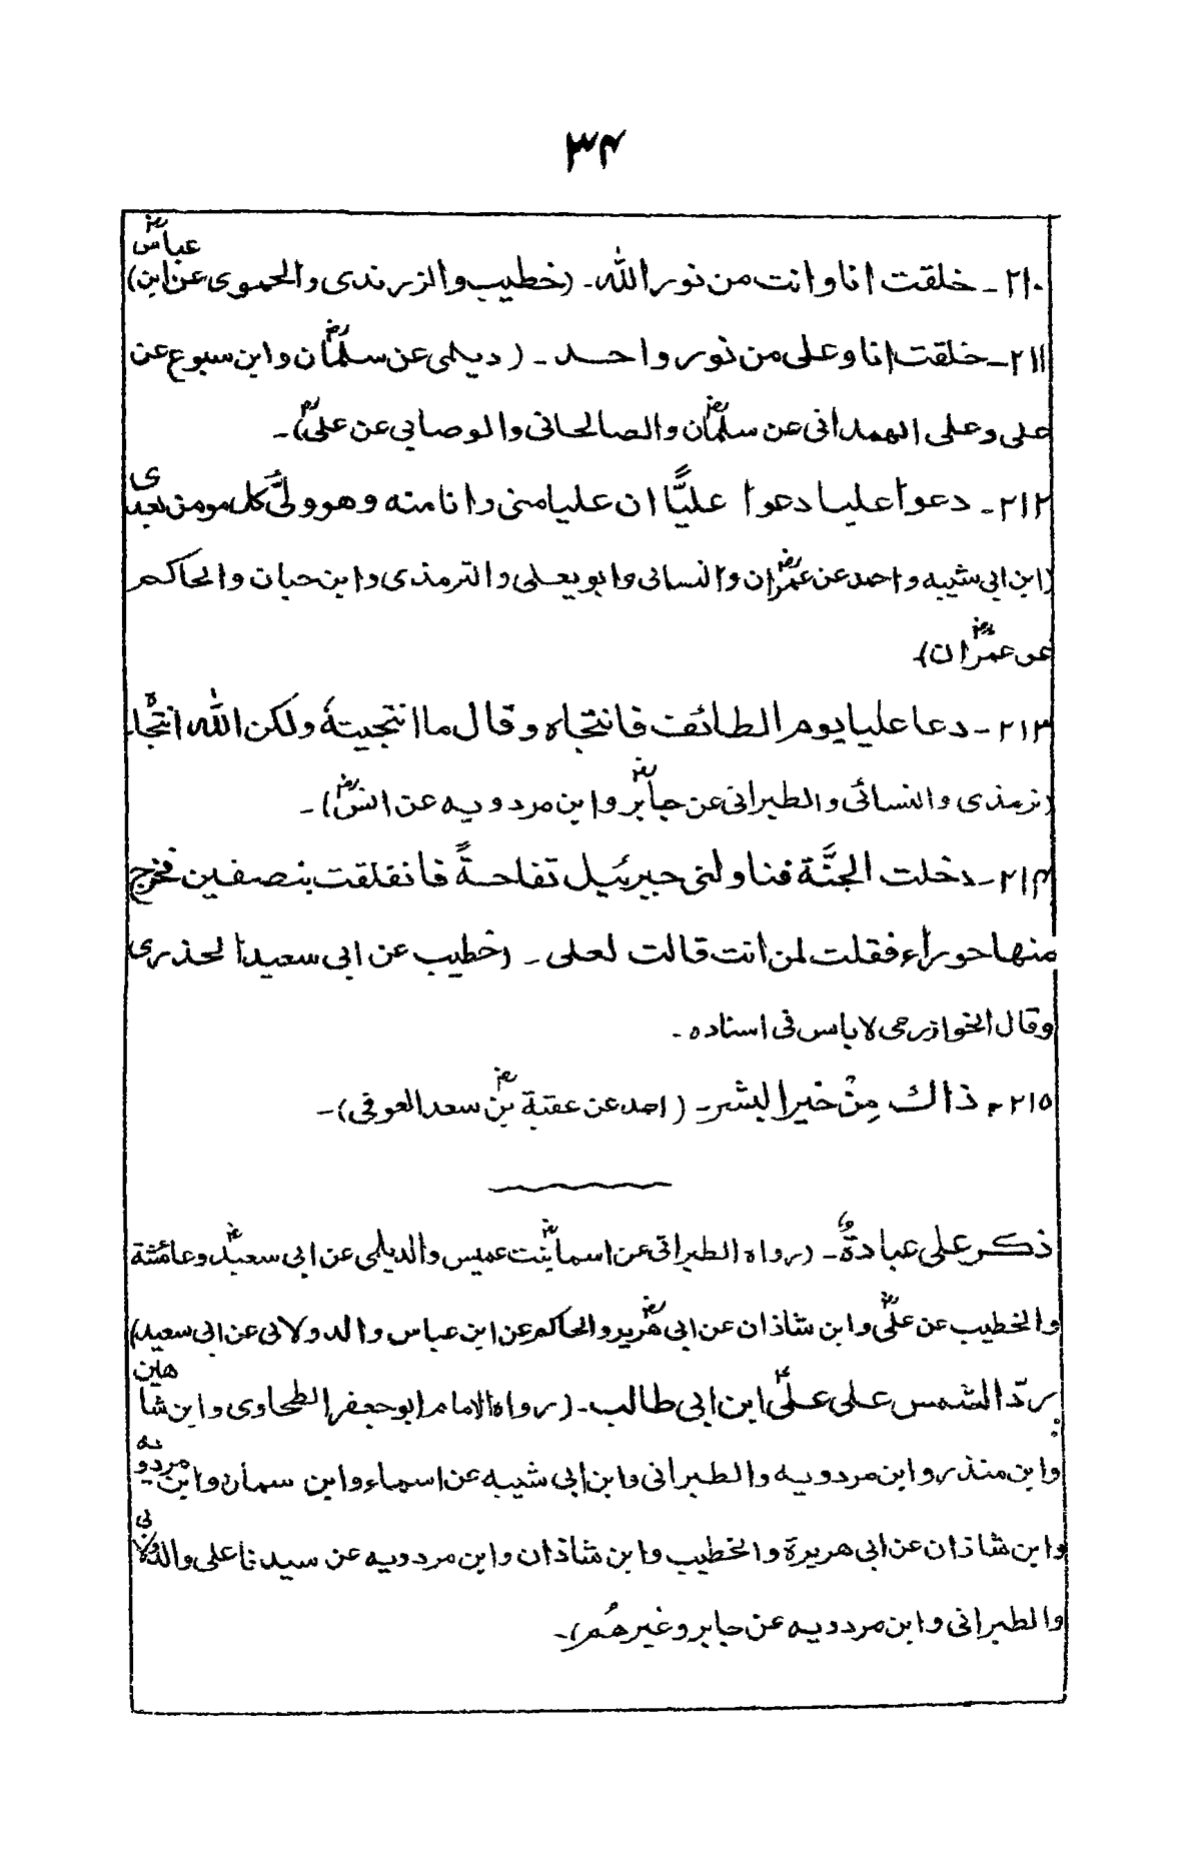 ۳۴
۲۱۰ـ خلقت انا وانت من نور الله۔ (خطیب والزرندی والحموی عن ابن عباسؓ)
۲۱۱ـ خلقت انا وعلی من نور واحد ۔ (دیلمی عن سلمانؓ وابن سبوع عن
علی وعلی الهمدانی عن سلمانؓ والصالحانی والوصابی عن علیؓ)۔
۲۱۲ـ دعوا علیا دعوا علیًّا ان علیا منی وانا منه وهو ولیُّ کل مومن بعدی
(ابن ابی شیبه واحمد عن عمرانؓ والنسائی وابو یعلی والترمذی وابن حبان والحاکم
عن عمرانؓ)۔
۲۱۳ـ دعا علیا یوم الطائف فانتجاه وقال ما انتجیتهٗ ولکن الله انتجاه
(ترمذی والنسائی والطبرانی عن جابرؓ وابن مردویه عن انسؓ)۔
۲۱۴ـ دخلت الجنَّة فناولنی جبرئیل تفاحةً فانفلقت بنصفین فخرج
منها حوراء فقلت لمن انت قالت لعلی ۔ (خطیب عن ابی سعید الخدری
وقال الخوازرمی لاباس فی اسناده ۔
۲۱۵ـ ذاك مِنْ خیر البشر۔ (احمد عن عقبة بنؓ سعد العوفی)۔
ذکر علی عبادةٌ۔ (رواه الطبرانی عن اسما بنتؓ عمیس والدیلمی عن ابی سعیدؓ وعائشة
والخطیب عن علیؓ وابن شاذان عن ابی هریرؓ والحاکم عن ابن عباس والدولابی عن ابی سعید)
ردّ الشمس علی علیؓ ابن ابی طالب۔ (رواه الامام ابو جعفر الطحاوی وابن شاهین
وابن منذر وابن مردویه والطبرانی وابن ابی شیبه عن اسماء وابن سمان وابن مردویه
وابن شاذان عن ابی هریرة والخطیب وابن شاذان وابن مردویه عن سیدنا علی والدولابی
والطبرانی وابن مردویه عن جابر وغیرهُم)۔